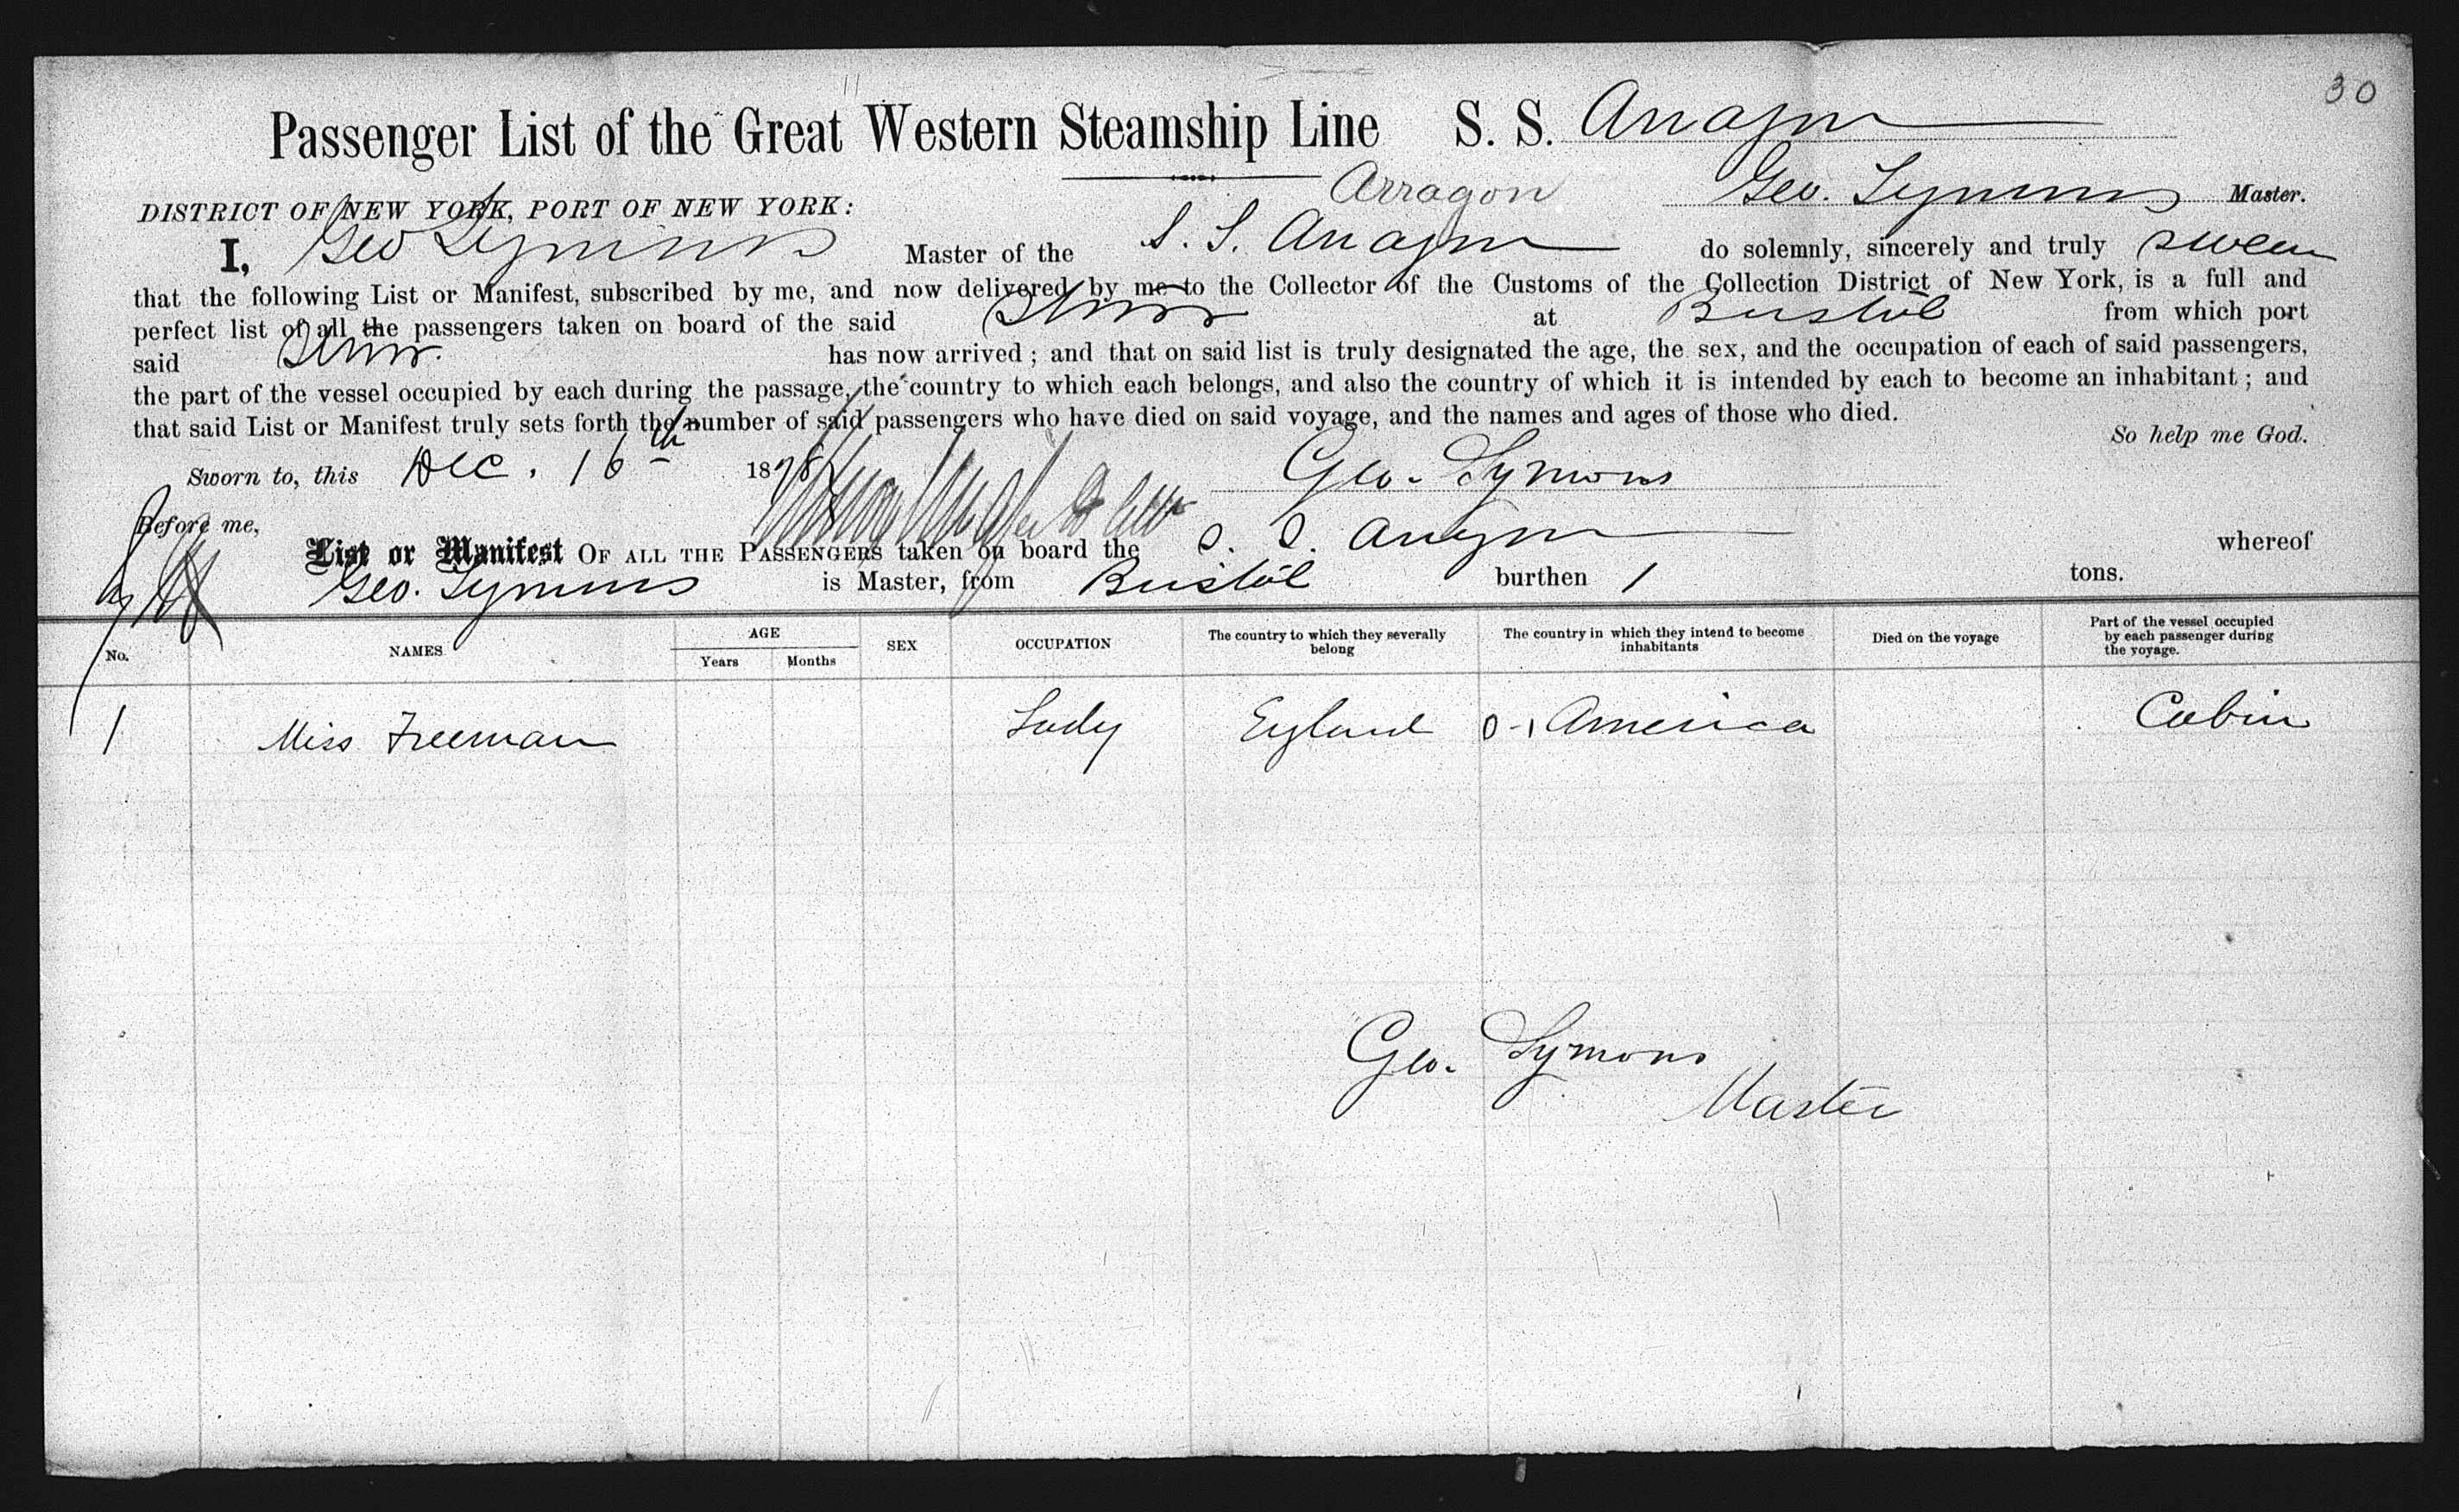 30
Passenger List of the Great Western Steamship Line S. S. Arragon
Arragon
Geo. Symons Master.
DISTRICT OF NEW YORK, PORT OF NEW YORK:
I, Geo Symons Master of the S. S. Arragon do solemnly, sincerely and truly swear
that the following List or Manifest, subscribed by me, and now delivered by me to the Collector of the Customs of the Collection District of New York, is a full and
perfect list of all the passengers taken on board of the said Stmr at Bristol from which port
said Stmr. has now arrived ; and that on said list is truly designated the age, the sex, and the occupation of each of said passengers,
the part of the vessel occupied by each during the passage, the country to which each belongs, and also the country of which it is intended by each to become an inhabitant ; and
that said List or Manifest truly sets forth the number of said passengers who have died on said voyage, and the names and ages of those who died.
So help me God.
Sworn to, this Dec. 16th 1878 Geo. Symons
Before me,
List or Manifest OF ALL THE PASSENGERS taken on board the S. S. Arragon whereof
Geo. Symons is Master, from Bristol burthen tons.
No. NAMES AGE Years Months SEX OCCUPATION The country to which they severally belong The country in which they intend to become inhabitants Died on the voyage Part of the vessel occupied by each passenger during the voyage.
1 Miss Freeman Lady England America Cabin
Geo. Symons
Master